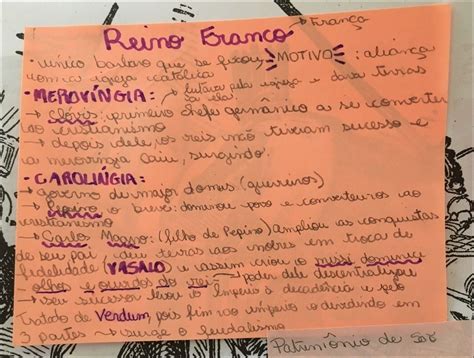 → França
Reino Franco
• único bárbaro que se fixou MOTIVO: aliança
com a igreja católica
• MEROVÍNGIA: → lutava pela igreja e dava terras
→ Clóvis: primeiro chefe germânico a se converter
ao cristianismo
→ depois dele, os reis não tiveram sucesso e
a merovíngia caiu, surgindo:
• CAROLÍNGIA:
→ governo do major domus (guerreiros)
→ Pepino o breve: dominou povo e converteu-os ao
cristianismo
→ Carlo Magno: (filho de Pepino) ampliou as conquistas
de seu pai, deu terras aos nobres em troca de
fidelidade (VASALO) e assim criou os missi dominici
olhos e ouvidos do rei → poder dele descentralizou
→ seu sucessor levou o império à decadência e pelo
Tratado de Verdum, pois fim ao império o dividindo em
3 partes → surge o feudalismo
Patrimônio de São